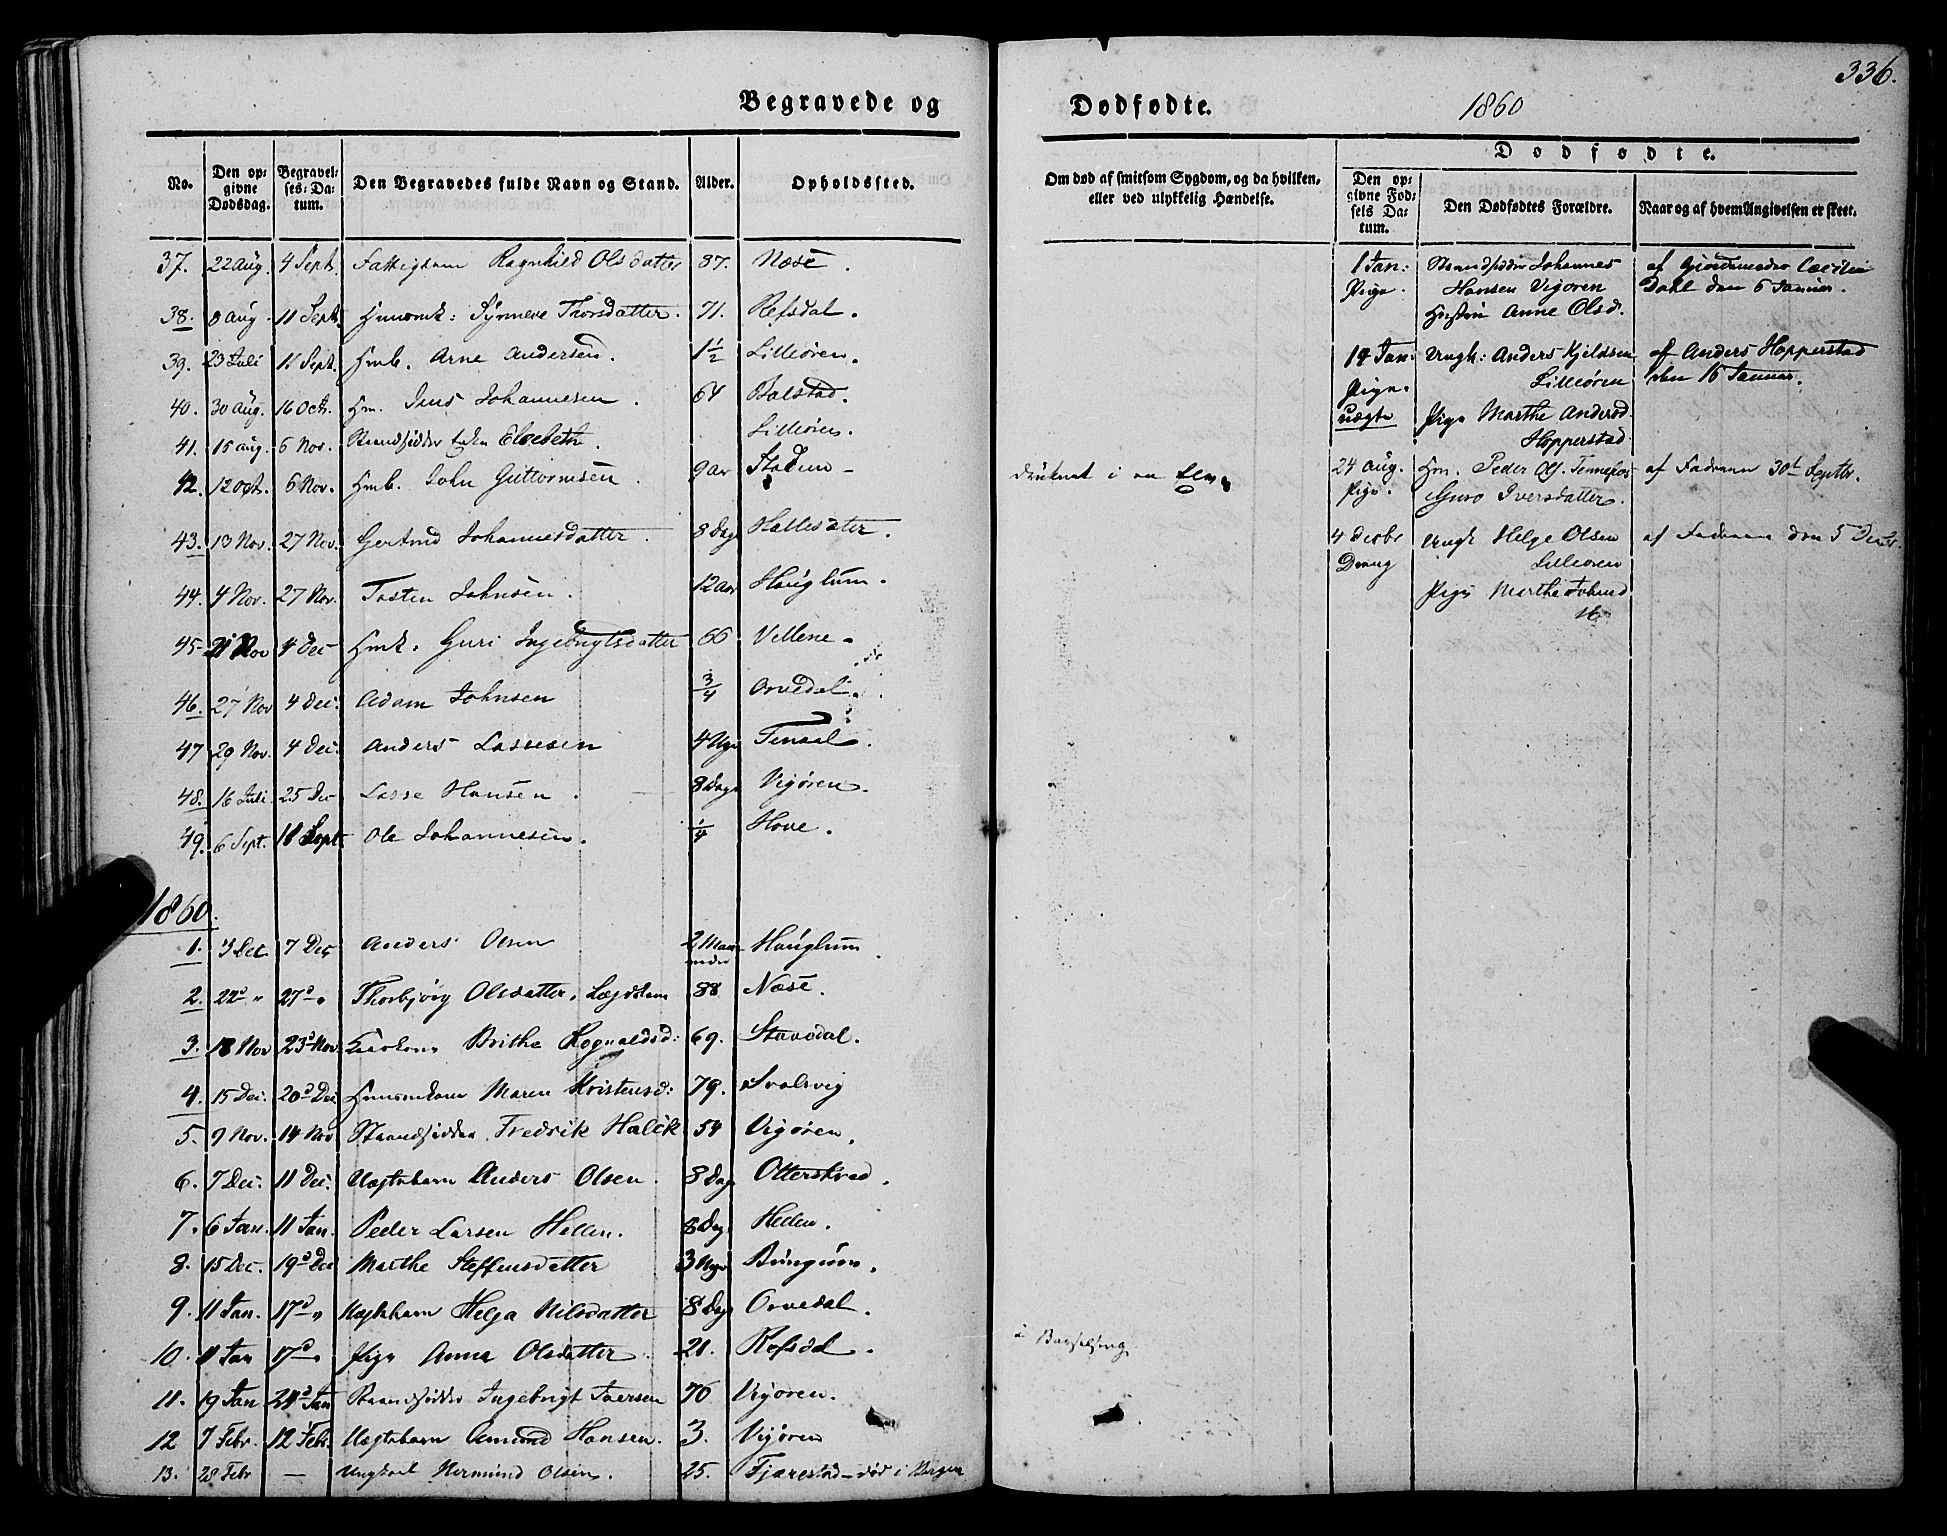 Begravede og
No. Den opgivne Dødsdag. Begravelses-Datum. Den Begravedes fulde Navn og Stand. Alder. Opholdssted.
37. 22 Aug. 4 Sept. Fattiglem Ragnhild Olsdatter 87. Næse.
38. 8 Aug. 11 Sept. Huusmk: Synneve Thorsdatter. 71. Refsdal.
39. 23 Juli 11 Sept. Hmb. Arne Andersen. 1 1/2 Lilleøren.
40. 30 Aug. 16 Oct. Hm. Jens Johannesen. 64 Bolstad.
41. 15 Aug. 6 Nov. Strandsidder Elsebeth. Lilleøren.
42. 12 Oct. 6 Nov. Hmb. John Guttormsen. 9 Aar Stadum
43. 13 Nov. 27 Nov. Gertrud Johannesdatter. 8 Dage Hallesæter.
44. 4 Nov. 27 Nov. Tosten Johnsen. 12 Aar Houglum.
45 21 Nov 4 Dec Hmk: Guri Ingebrigtsdatter 66 Vellene
46. 27 Nov 4 Dec: Adam Johnsen 3/4 Orvedal.
47 29 Nov. 4 Dec. Anders Lassesen 4 Uger Tenaal.
48. 16 Juli 25 Dec Lasse Hansen. 8 Dage Vigøren.
49. 6 Sept. 18 Sept. Ole Johannesen. 1/4 Hove.
1860.
1. 3 Dec 7 Dec Anders Olsen 2 Maaneder Houglum
2. 22d " 27d " Thorbjørg Olsdatter, Lægdslem 88 Næse.
3. 18 Nov 23d Nov. Brithe Rognaldsd: 69. Stavedal.
4. 15 Dec. 20d Dec Maren Kristensd: 79. Svolsvig
5. 9 Nov. 14 Nov Strandsidder Fredrik Halck 54 Vigøren.
6. 7 Dec. 11 Dec. Uægtebarn Anders Olsen. 8 Dage Otterskred.
7. 6 Jan. 11 Jan. Peder Larsen Hellen. 8 Dag Hellen.
8. 15 Dec. 19d Dec Marthe Steffensdatter 3 Uger
9. 11 Jan. 17d " Uægtebarn Helga Nilsdatter 8 Dage Orvedal.
10. 11 Jan 17d " Pige Anna Olsdatter. 21. Refsdal.
11. 19 Jan 24d Jan Strandsidder Ingebrigt Iversen 76 Vigøren.
12 7 Febr. 12 Febr. Uægtebarn Amund Hansen. 3. Vigøren
13. 28 Febr — Ungkarl Nermund Olsen. 25. Fjærestad – død i Bergen
336.
Dødfødte. 1860
Dødfødte.
Om død af smitsom Sygdom, og da hvilken, eller ved ulykkelig Hændelse. Den opgivne Fødsels Datum. Den Dødfødtes Forældre. Naar og af hvem Angivelsen er skeet.
1 Jan: Strandsidder Johannes af Gjordemoder Cæcilia
Pige. Hansen Vigøren Dahl den 6 Januar.
Hustru Anne Olsd.
14 Jan: Ungk: Anders Kjeldsen af Anders Hopperstad
Pige. Lilleøren den 16 Januar.
uægte Pige Marthe Andersd.
Hopperstad
druknet i en Elv. 24 Aug. Hm. Peder Ols. Tennefos af Faderen 30t Septbr.
Pige. Guro Iversdatter.
4 Decbr Ungk Helge Olsen af Faderen den 5 Decbr.
Dreng Lilleøren
Pige Marthe Johnsd
i Barselseng.